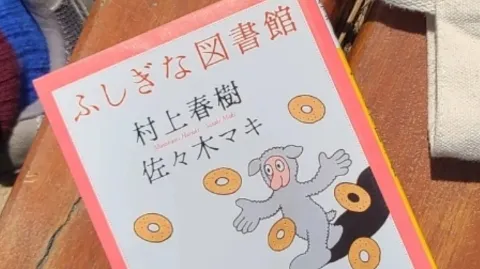 ふしぎな図書館
村上春樹
佐々木マキ